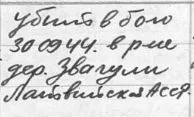 убит в бою
30 09 44. в р-не
дер. Звагули
Латвийская ССР.